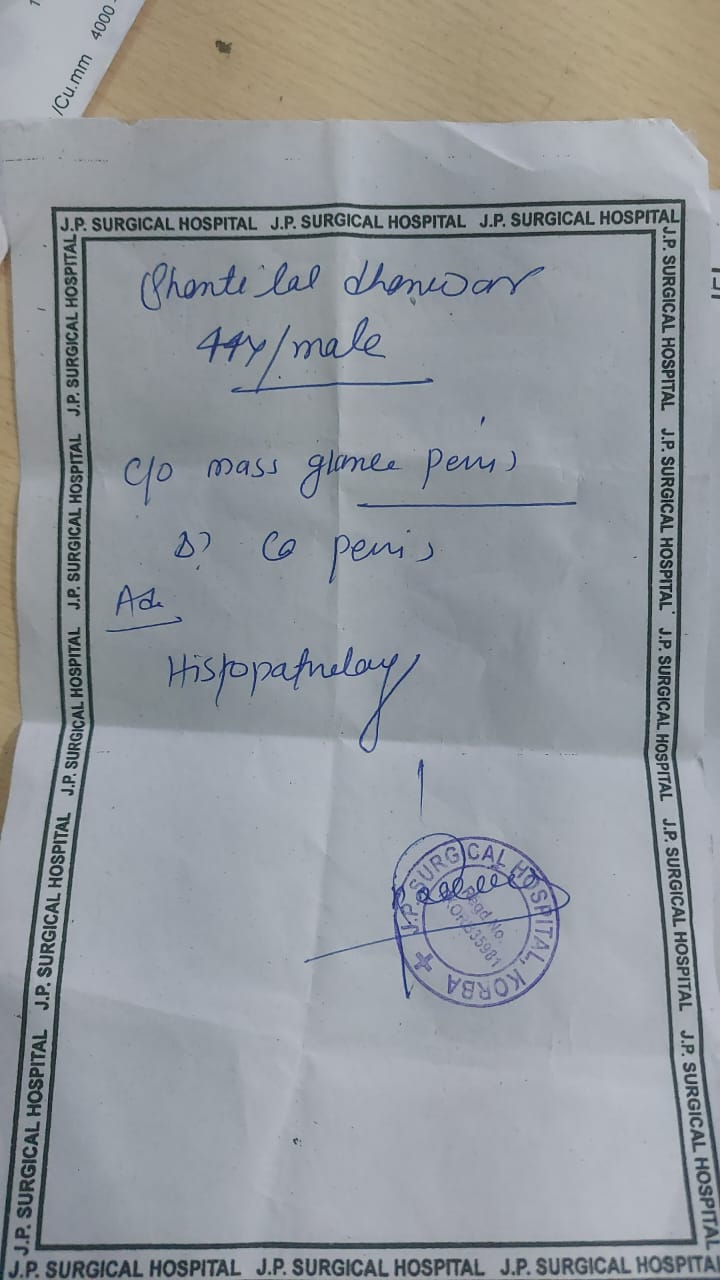 /Cu.mm 4000
J.P. SURGICAL HOSPITAL J.P. SURGICAL HOSPITAL J.P. SURGICAL HOSPITAL
Shanti lal dhanwar
44y/male
C/o mass glance penis
D? Ca penis
Adv
Histopathology
J.P. SURGICAL HOSPITAL, KORBA
Regd.No.
J.P. SURGICAL HOSPITAL J.P. SURGICAL HOSPITAL J.P. SURGICAL HOSPITAL J.P. SURGICAL HOSPITAL J.P. SURGICAL HOSPITAL
J.P. SURGICAL HOSPITAL J.P. SURGICAL HOSPITAL J.P. SURGICAL HOSPITAL J.P. SURGICAL HOSPITAL J.P. SURGICAL HOSPITAL
J.P. SURGICAL HOSPITAL J.P. SURGICAL HOSPITAL J.P. SURGICAL HOSPITAL